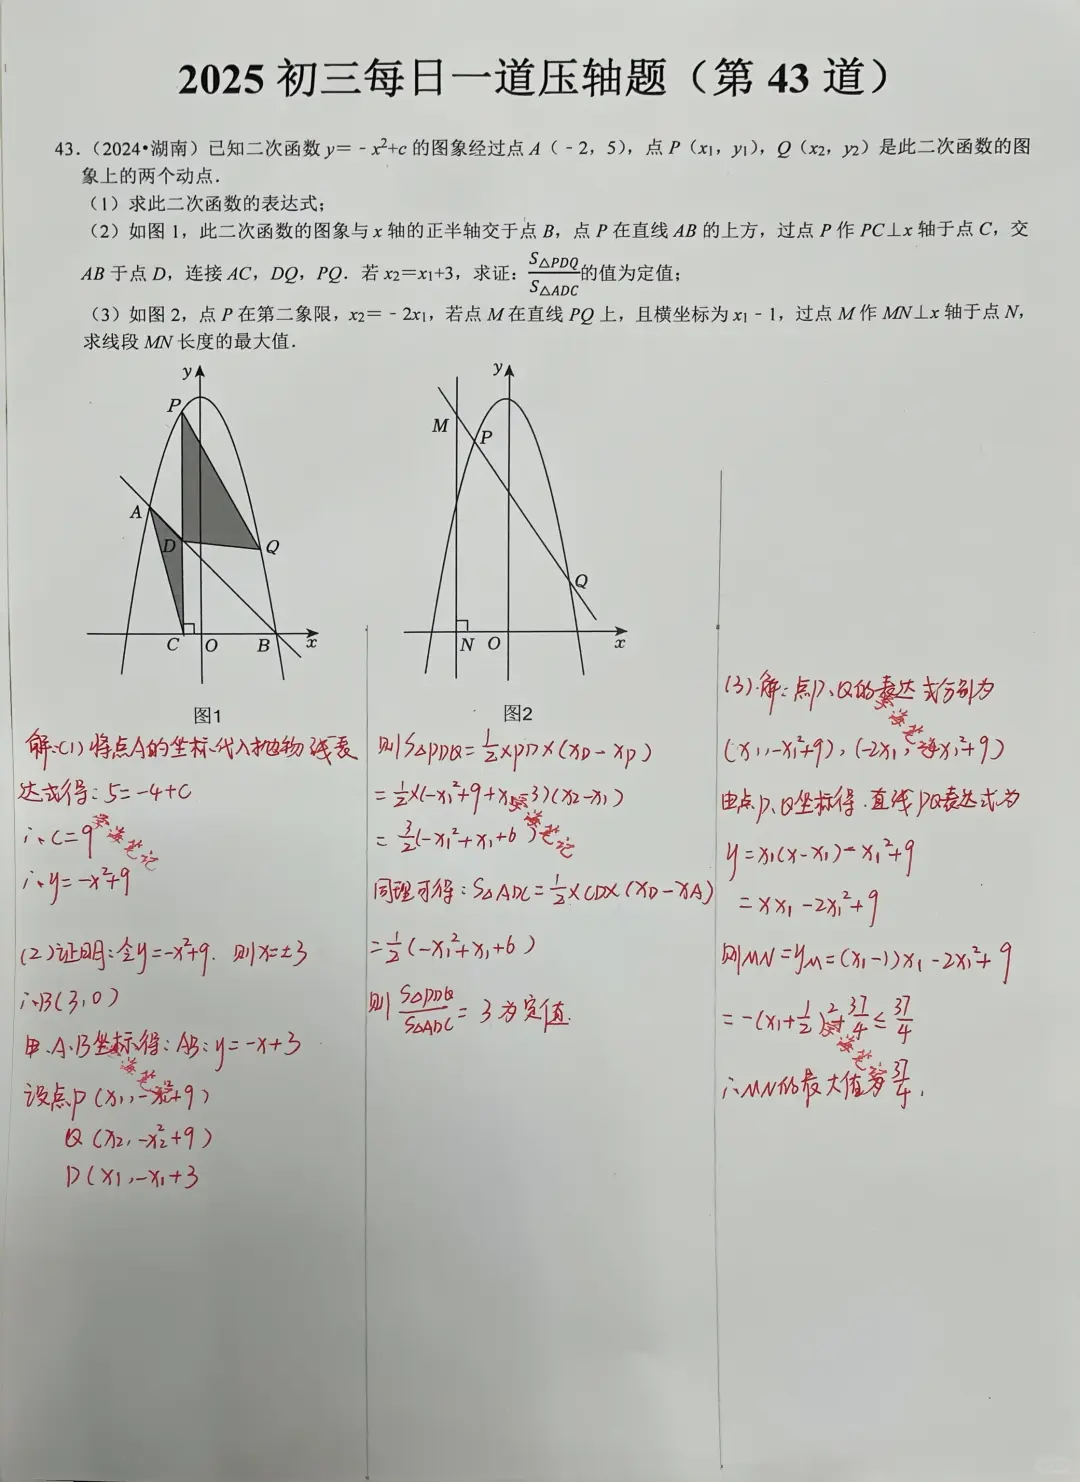 2025 初三每日一道压轴题（第 43 道）
43.（2024•湖南）已知二次函数 y＝﹣x²+c 的图象经过点 A（﹣2，5），点 P（x₁，y₁），Q（x₂，y₂）是此二次函数的图
象上的两个动点．
（1）求此二次函数的表达式；
（2）如图 1，此二次函数的图象与 x 轴的正半轴交于点 B，点 P 在直线 AB 的上方，过点 P 作 PC⊥x 轴于点 C，交
AB 于点 D，连接 AC，DQ，PQ．若 x₂＝x₁+3，求证：S△PDQ/S△ADC的值为定值；
（3）如图 2，点 P 在第二象限，x₂＝﹣2x₁，若点 M 在直线 PQ 上，且横坐标为 x₁﹣1，过点 M 作 MN⊥x 轴于点 N，
求线段 MN 长度的最大值．
y
P
A
D
Q
C
O
B
x
图1
y
M
P
Q
N
O
x
图2
解:(1)将点A的坐标代入抛物线表
达式得:5=-4+C
∴C=9
∴y=-x²+9
(2)证明:令y=-x²+9. 则x=±3
∴B(3,0)
由A、B坐标得:AB:y=-x+3
设点P(x₁,-x₁²+9)
Q(x₂,-x₂²+9)
D(x₁,-x₁+3
则S△PDQ=1/2×PD×(xQ-xP)
=1/2×(-x₁²+9+x₁-3)(x₂-x₁)
=3/2(-x₁²+x₁+6)
同理可得:S△ADC=1/2×CD×(xD-xA)
=1/2(-x₁²+x₁+6)
则S△PDQ/S△ADC=3为定值.
(3)解:点P、Q的表达式分别为
(x₁,-x₁²+9),(-2x₁,-4x₁²+9)
由点P、Q坐标得.直线PQ表达式为
y=x₁(x-x₁)-x₁²+9
=xx₁-2x₁²+9
则MN=yM=(x₁-1)x₁-2x₁²+9
=-(x₁+1/2)²+37/4≤37/4
∴MN的最大值为37/4.